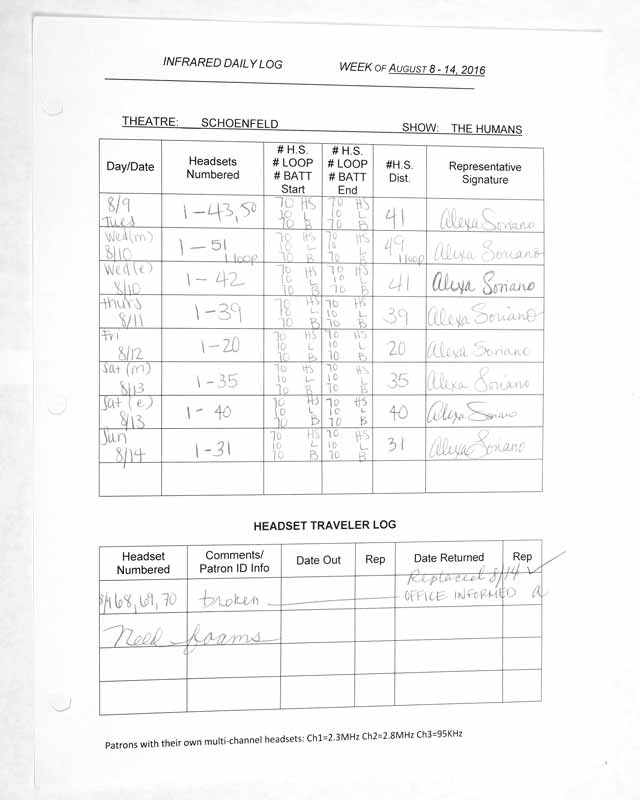 INFRARED DAILY LOG WEEK OF AUGUST 8 - 14, 2016
THEATRE: SCHOENFELD SHOW: THE HUMANS
Day/Date Headsets Numbered # H.S. # LOOP # BATT Start # H.S. # LOOP # BATT End #H.S. Dist. Representative Signature
8/9 Tues 1-43,50 70 HS 10 L 70 B 70 HS 10 L 70 B 41 Alexa Soriano
Wed(m) 8/10 1-51 1 loop 70 HS 10 L 70 B 70 HS 10 L 70 B 49 1 loop Alexa Soriano
Wed(e) 8/10 1-42 70 HS 10 L 70 B 70 HS 10 L 70 B 41 Alexa Soriano
Thurs 8/11 1-39 70 HS 10 L 70 B 70 HS 10 L 70 B 39 Alexa Soriano
Fri 8/12 1-20 70 HS 10 L 70 B 70 HS 10 L 70 B 20 Alexa Soriano
Sat (m) 8/13 1-35 70 HS 10 L 70 B 70 HS 10 L 70 B 35 Alexa Soriano
Sat (e) 8/13 1-40 70 HS 10 L 70 B 70 HS 10 L 70 B 40 Alexa Soriano
Sun 8/14 1-31 70 HS 10 L 70 B 70 HS 10 L 70 B 31 Alexa Soriano
HEADSET TRAVELER LOG
Headset Numbered Comments/ Patron ID Info Date Out Rep Date Returned Rep
68, 69, 70 broken Replaced 8/14 ✓ OFFICE INFORMED a
Need foams
Patrons with their own multi-channel headsets: Ch1=2.3MHz Ch2=2.8MHz Ch3=95KHz